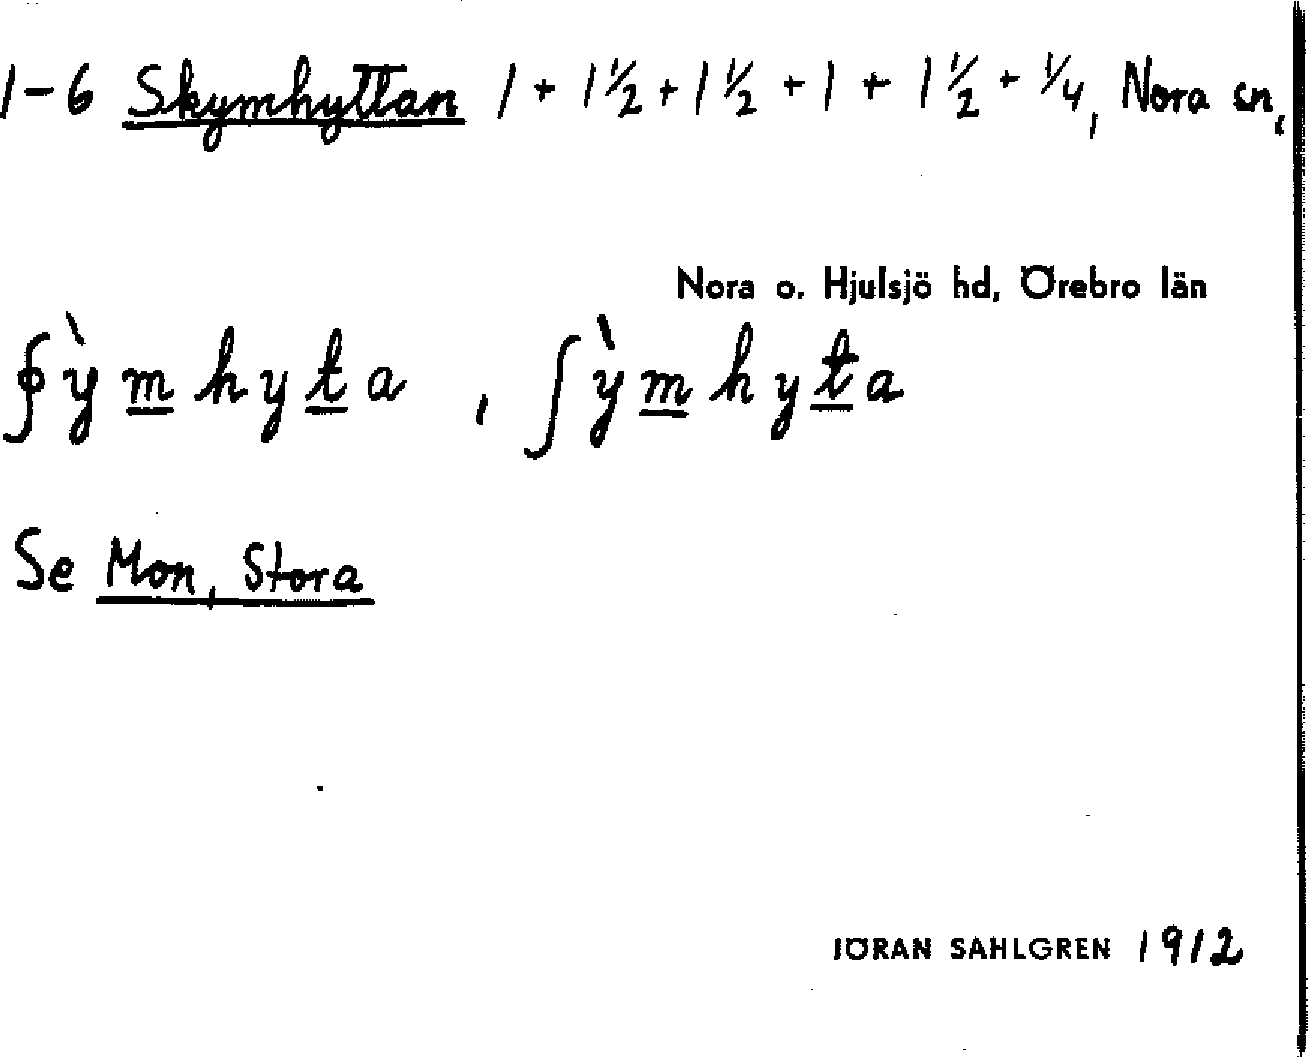 1-6 Skymhyttan 1 + 1 1/2 + 1 1/2 + 1 + 1 1/2 + 1/4, Nora sn,
Nora o. Hjulsjö hd, Örebro län
ʃỳmhyta, ʃỳmhyta
Se Mon, Stora
JÖRAN SAHLGREN 1912